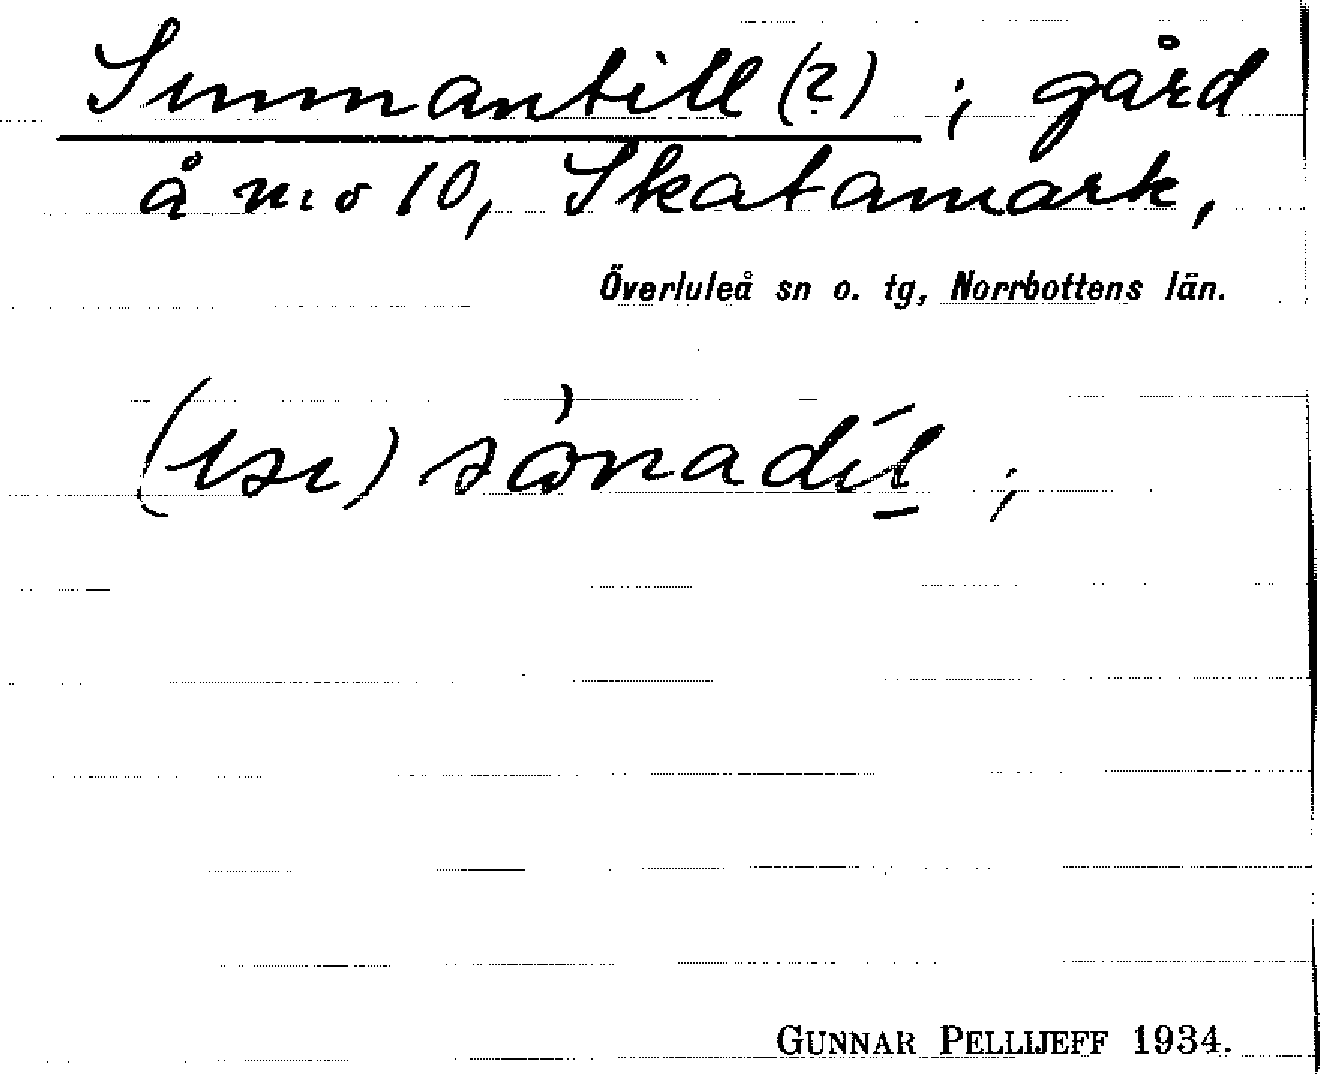 Sunnantill (?) ; gård
å n:o 10, Skatamark,
Överluleå sn o. tg, Norrbottens län.
GUNNAR PELLIJEFF 1934.